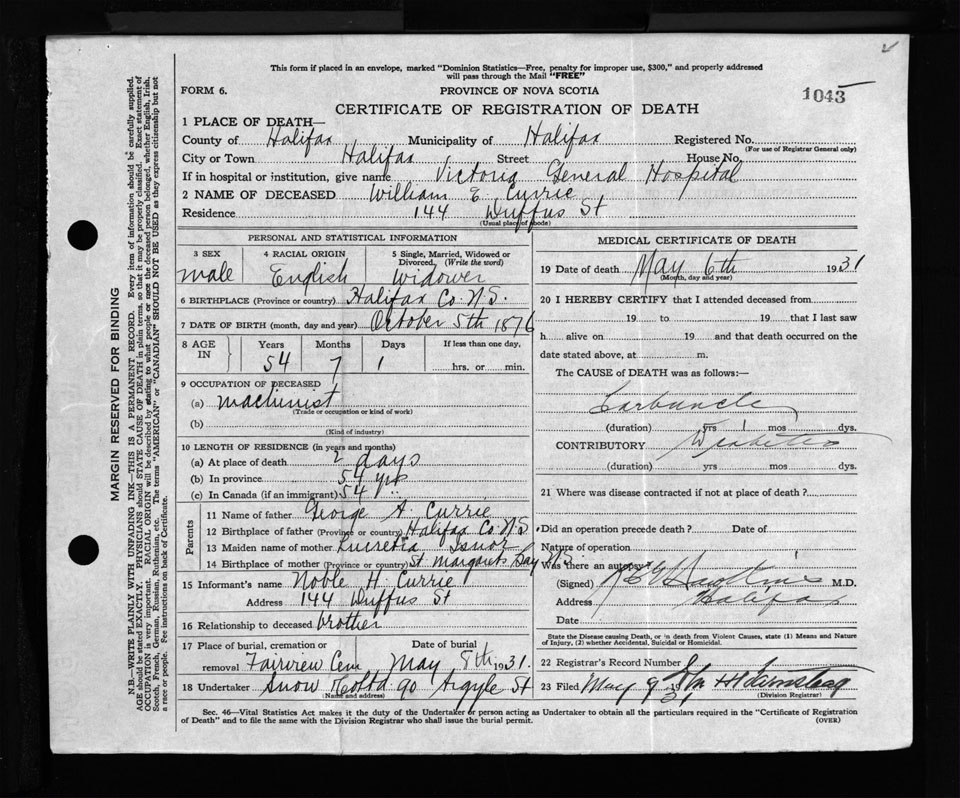 This form if placed in an envelope, marked "Dominion Statistics—Free, penalty for improper use, $300," and properly addressed
will pass through the Mail "FREE"
FORM 6.
PROVINCE OF NOVA SCOTIA
1043
CERTIFICATE OF REGISTRATION OF DEATH
1 PLACE OF DEATH—
County of Halifax Municipality of Halifax Registered No.
(For use of Registrar General only)
City or Town Halifax Street House No.
If in hospital or institution, give name Victoria General Hospital
2 NAME OF DECEASED William E. Currie
Residence 144 Duffus St
(Usual place of abode)
PERSONAL AND STATISTICAL INFORMATION
3 SEX 4 RACIAL ORIGIN 5 Single, Married, Widowed or Divorced, (Write the word)
male English Widower
6 BIRTHPLACE (Province or country) Halifax Co. N.S.
7 DATE OF BIRTH (month, day and year) October 5th 1876
8 AGE IN Years Months Days If less than one day,
54 7 1 hrs. or min.
9 OCCUPATION OF DECEASED
(a) machinist
(Trade or occupation or kind of work)
(b)
(Kind of industry)
10 LENGTH OF RESIDENCE (in years and months)
(a) At place of death 2 days
(b) In province 54 yrs
(c) In Canada (if an immigrant) 54 "
Parents
11 Name of father George A. Currie
12 Birthplace of father (Province or country) Halifax Co. N.S.
13 Maiden name of mother
14 Birthplace of mother (Province or country) St Margarets Bay N.S.
15 Informant's name Noble H. Currie
Address 144 Duffus St
16 Relationship to deceased brother
17 Place of burial, cremation or removal Date of burial
Fairview Cem May 8th 1931.
18 Undertaker Snow & Co Ltd. 90 Argyle St
(Name and address)
MEDICAL CERTIFICATE OF DEATH
19 Date of death May 6th 1931
(Month, day and year)
20 I HEREBY CERTIFY that I attended deceased from
19 to 19 that I last saw
h alive on 19 and that death occurred on the
date stated above, at m.
The CAUSE of DEATH was as follows:—
Carbuncle
(duration) yrs mos dys.
CONTRIBUTORY Diabetes
(duration) yrs mos dys.
21 Where was disease contracted if not at place of death?
Did an operation precede death? Date of
Nature of operation
Was there an autopsy?
(Signed) M.D.
Address Halifax
Date
State the Disease causing Death, or in death from Violent Causes, state (1) Means and Nature
of Injury, (2) whether Accidental, Suicidal or Homicidal.
22 Registrar's Record Number
23 Filed May 9 1931
(Division Registrar)
Sec. 46—Vital Statistics Act makes it the duty of the Undertaker or person acting as Undertaker to obtain all the particulars required in the "Certificate of Registration
of Death" and to file the same with the Division Registrar who shall issue the burial permit.
(OVER)
MARGIN RESERVED FOR BINDING
N.B.—WRITE PLAINLY WITH UNFADING INK—THIS IS A PERMANENT RECORD. Every item of information should be carefully supplied.
AGE should be stated EXACTLY. PHYSICIANS should STATE CAUSE OF DEATH in plain terms, so that it may be properly classified. Exact statement of
OCCUPATION is very important. RACIAL ORIGIN will be described by stating to what people or race the deceased person belonged, whether English, Irish,
Scotch, French, German, Russian, Ruthenian, etc. The terms "AMERICAN" or "CANADIAN" SHOULD NOT BE USED as they express citizenship but not
a race or people. See instructions on back of Certificate.